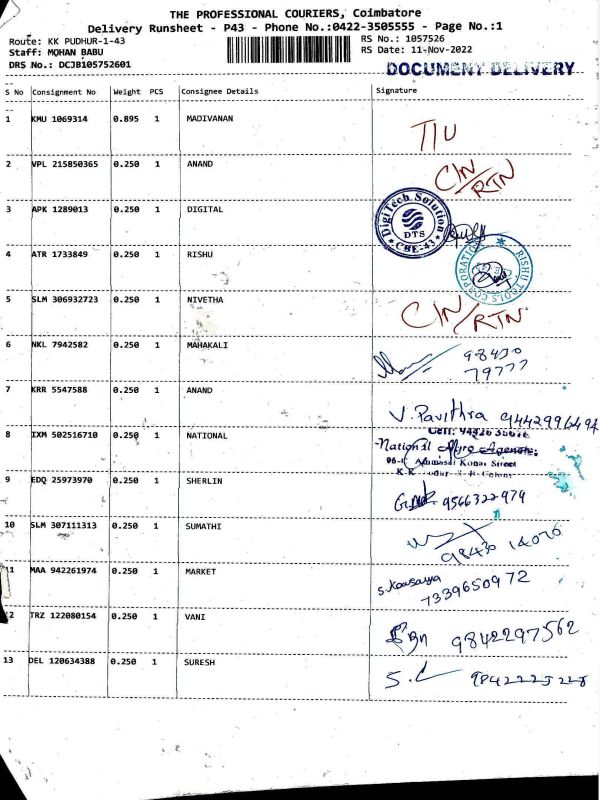 THE PROFESSIONAL COURIERS, Coimbatore
Delivery Runsheet - P43 - Phone No.:0422-3505555 - Page No.:1
Route: KK PUDHUR-1-43
RS No.: 1057526
Staff: MOHAN BABU
RS Date: 11-Nov-2022
DRS No.: DCJB105752601
DOCUMENT DELIVERY
S No Consignment No Weight PCS Consignee Details Signature
1 KMU 1069314 0.895 1 MADIVANAN
TIU
2 VPL 215850365 0.250 1 ANAND
CIN/RTN
3 APK 1289013 0.250 1 DIGITAL
DigiTech Solution
DTS
CBE-43
4 ATR 1733849 0.250 1 RISHU
RISHU TOOLS CORPORATION
5 SLM 306932723 0.250 1 NIVETHA
CIN/RTN
6 NKL 7942582 0.250 1 MAHAKALI
98430
79777
7 KRR 5547588 0.250 1 ANAND
V. Pavithra 9442996494
8 IXM 502516710 0.250 1 NATIONAL
National Agro Agencies
Konar Street
9 EDQ 25973970 0.250 1 SHERLIN
9566322979
10 SLM 307111313 0.250 1 SUMATHI
98430 14076
11 MAA 942261974 0.250 1 MARKET
S. Kousalya
7339650972
12 TRZ 122080154 0.250 1 VANI
9842297562
13 DEL 120634388 0.250 1 SURESH
9842225228